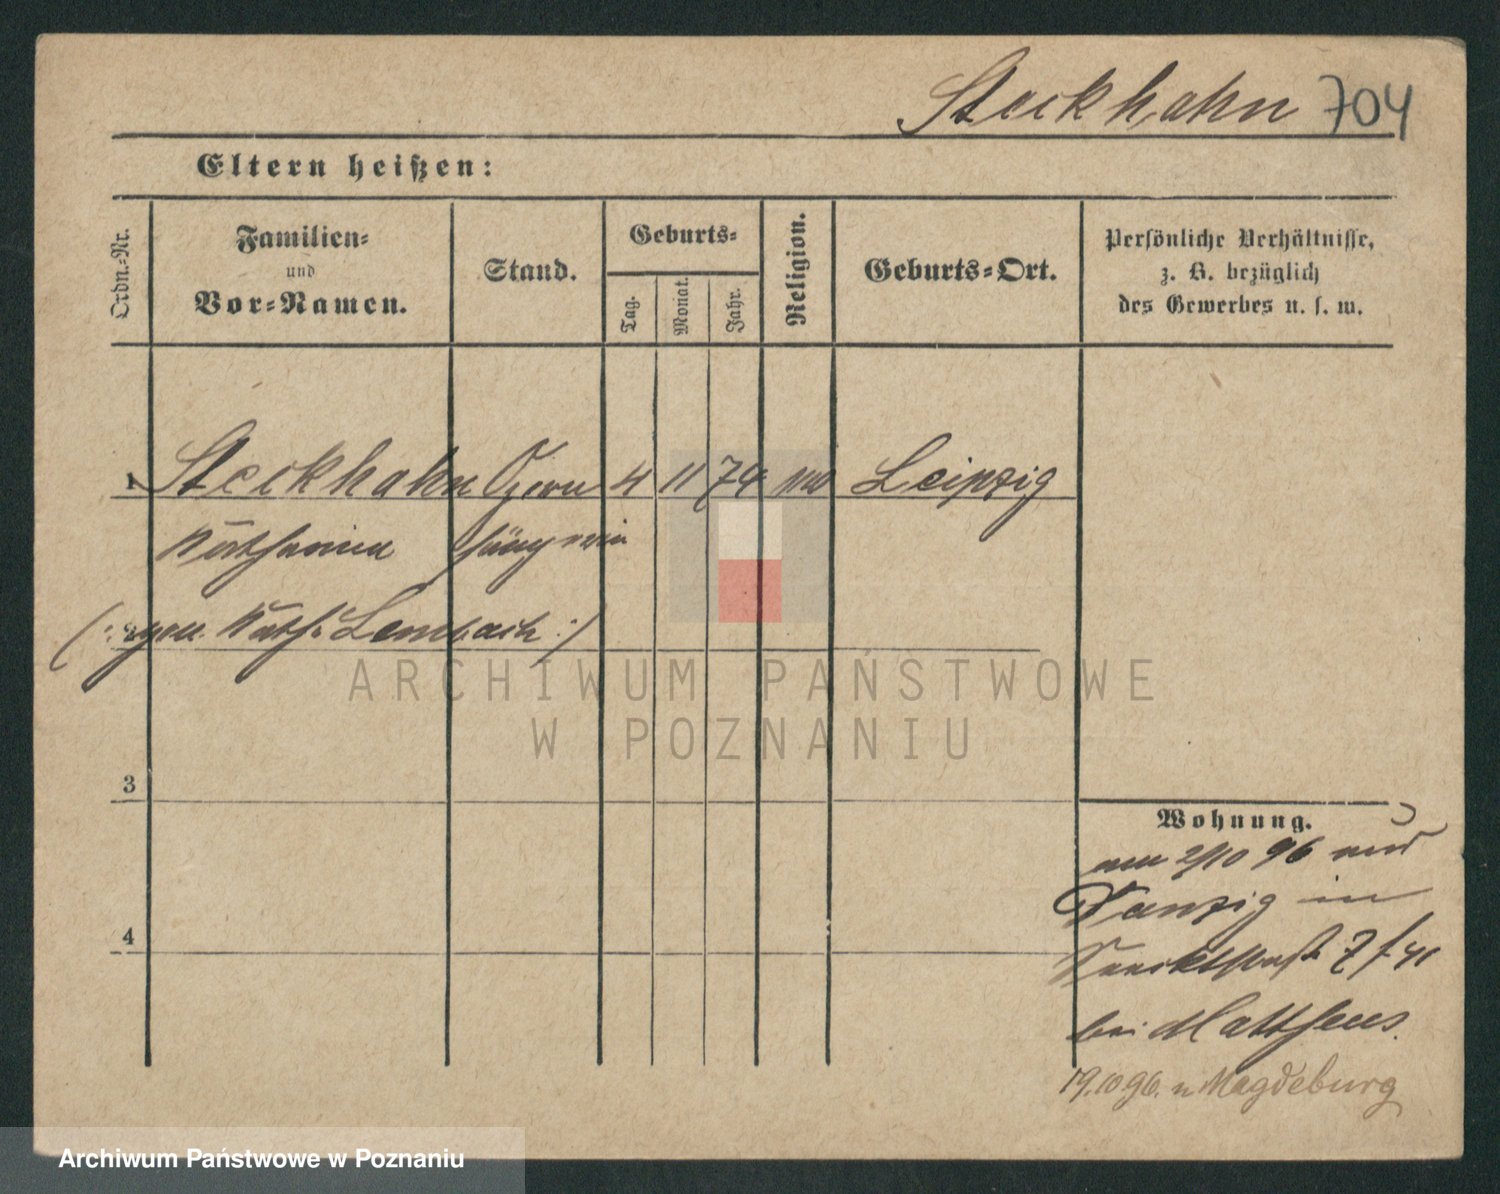 Steckhahn 704
Eltern heißen:
Ordn.-Nr.
Familien-
und
Vor-Namen.
Stand.
Geburts-
Tag.
Monat.
Jahr.
Religion.
Geburts-Ort.
Persönliche Verhältnisse,
z. B. bezüglich
des Gewerbes u. s. w.
1 Steckhahn Opern 4 11 74 Leipzig
Katharina sängerin
(: gen. Kath. Lembach :)
3
4
Wohnung.
am 2/10 96 aus
Danzig in
7
bei Mattheus.
19.10.96. n Magdeburg
ARCHIWUM PAŃSTWOWE
W POZNANIU
Archiwum Państwowe w Poznaniu